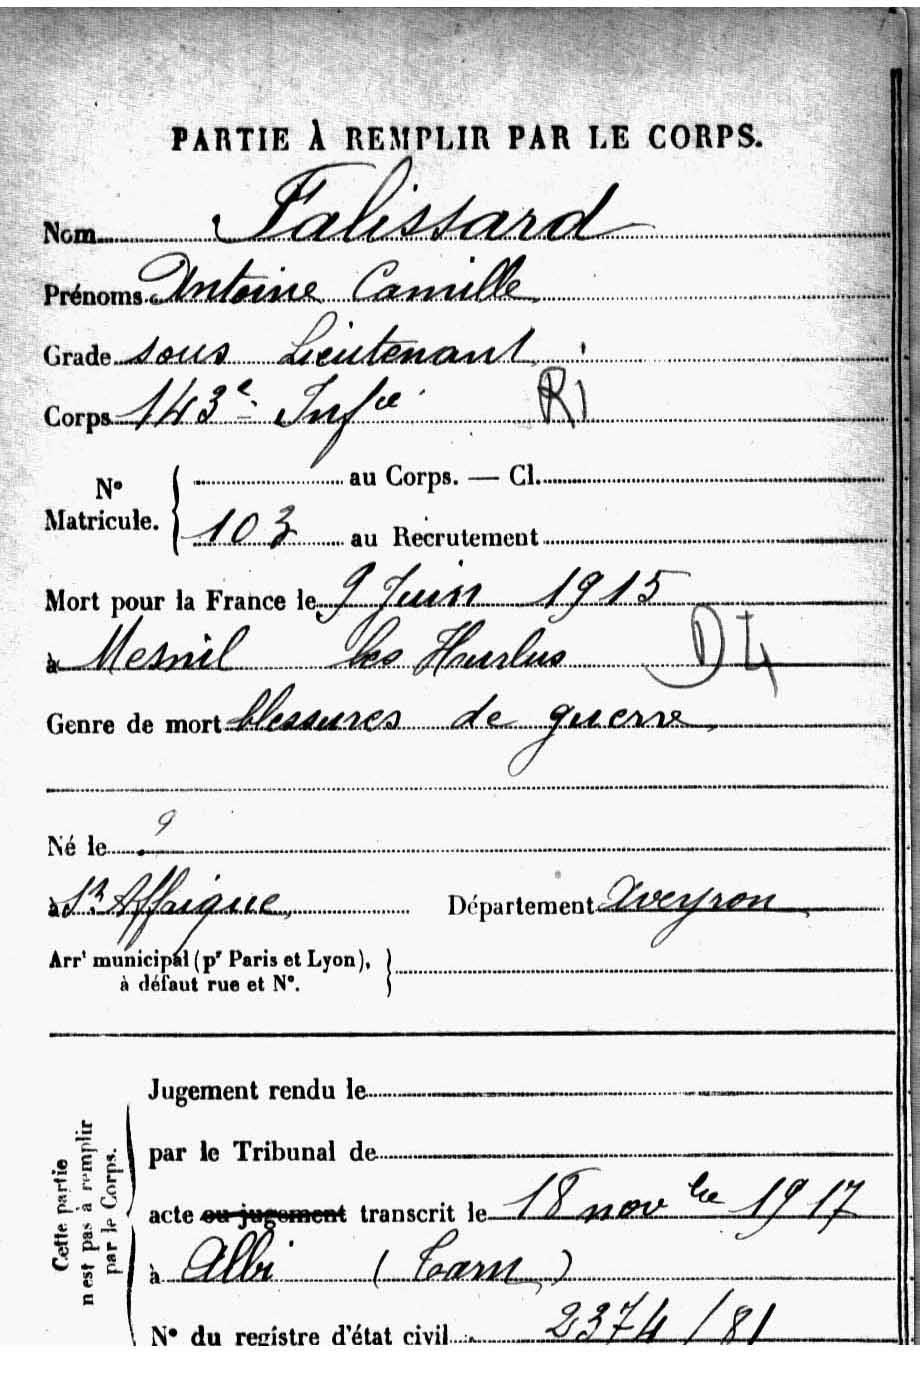 PARTIE À REMPLIR PAR LE CORPS.
Nom Falissard
Prénoms Antoine Camille
Grade sous Lieutenant
Corps 143e Infie RI
N° Matricule. { au Corps. — Cl.
103 au Recrutement
Mort pour la France le 9 Juin 1915
à Mesnil les Hurlus D4
Genre de mort blessures de guerre
9
Né le
à St Affrique, Département Aveyron
Arrt municipal (pr Paris et Lyon),
à défaut rue et N°.
Cette partie
n'est pas à remplir
par le Corps.
Jugement rendu le
par le Tribunal de
acte ou jugement transcrit le 18 novbre 1917
à Albi (Tarn)
N° du registre d'état civil 2374/81